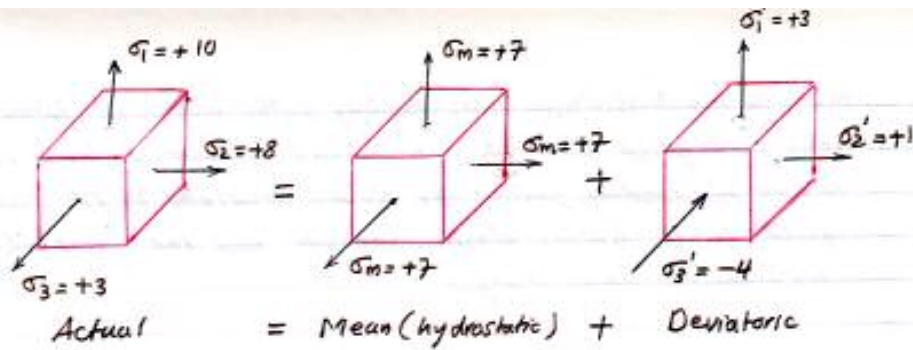 σ1 = +10
σm = +7
σ1' = +3
σ2 = +8
σm = +7
σ2' = +1
=
+
σ3 = +3
σm = +7
σ3' = -4
Actual = Mean (hydrostatic) + Deviatoric